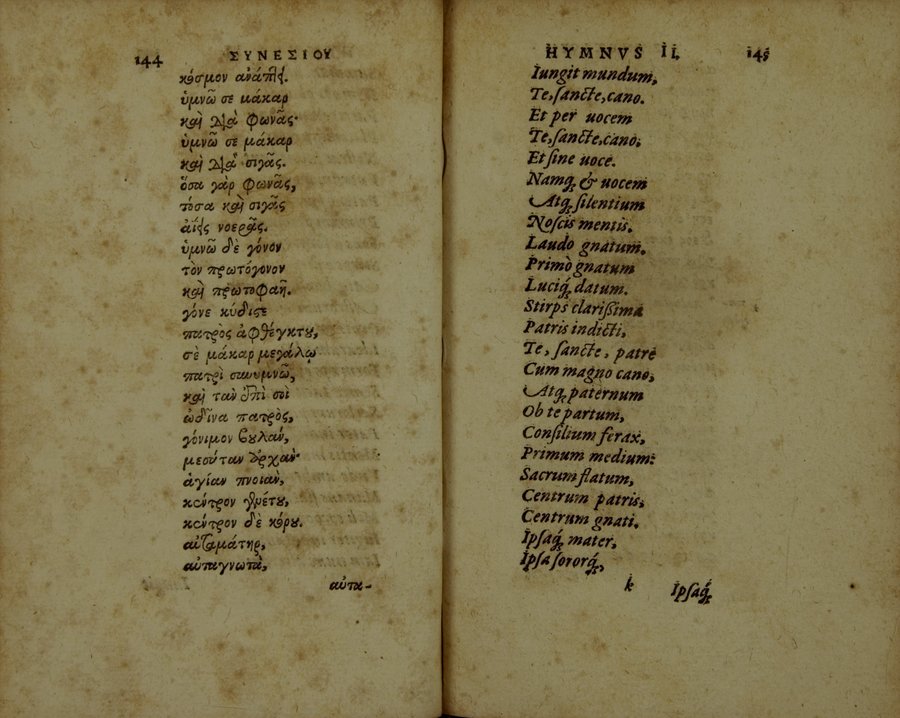 144 ΣΥΝΕΣΙΟΥ
κόσμον
ὑμνῶ σε μάκαρ
καὶ διὰ φωνᾶς·
ὑμνῶ σε μάκαρ
καὶ διὰ σιγᾶς.
ὅσα γὰρ φωνᾶς,
τόσα καὶ σιγᾶς
ἀΐεις νοερᾶς.
ὑμνῶ δὲ γόνον
τὸν πρωτόγονον
καὶ πρωτοφαῆ.
γόνε κύδιστε
πατρὸς ἀφθέγκτου,
σὲ μάκαρ μεγάλῳ
πατρὶ συνυμνῶ,
καὶ τὰν ἐπὶ σοὶ
ὠδῖνα πατρὸς,
γόνιμον βουλὰν,
μεσάταν ἀρχὰν·
ἁγίαν πνοιὰν,
κέντρον γενέτου,
κέντρον δὲ κόρου.
αὐταμάτηρ,
αὐταγνωτὰ,
αὐτα-
HYMNVS II. 145
Iungit mundum,
Te, sancte, cano.
Et per uocem
Te, sancte, cano,
Et sine uoce.
Namq; & uocem
Atq; silentium
Noscis mentis.
Laudo gnatum.
Primò gnatum
Luciq; datum.
Stirps clarissima
Patris indicti,
Te, sancte, patre
Cum magno cano,
Atq; paternum
Ob te partum,
Consilium ferax,
Primum medium:
Sacrum flatum,
Centrum patris,
Centrum gnati.
Ipsaq; mater,
Ipsa sororq;,
k Ipsaq;